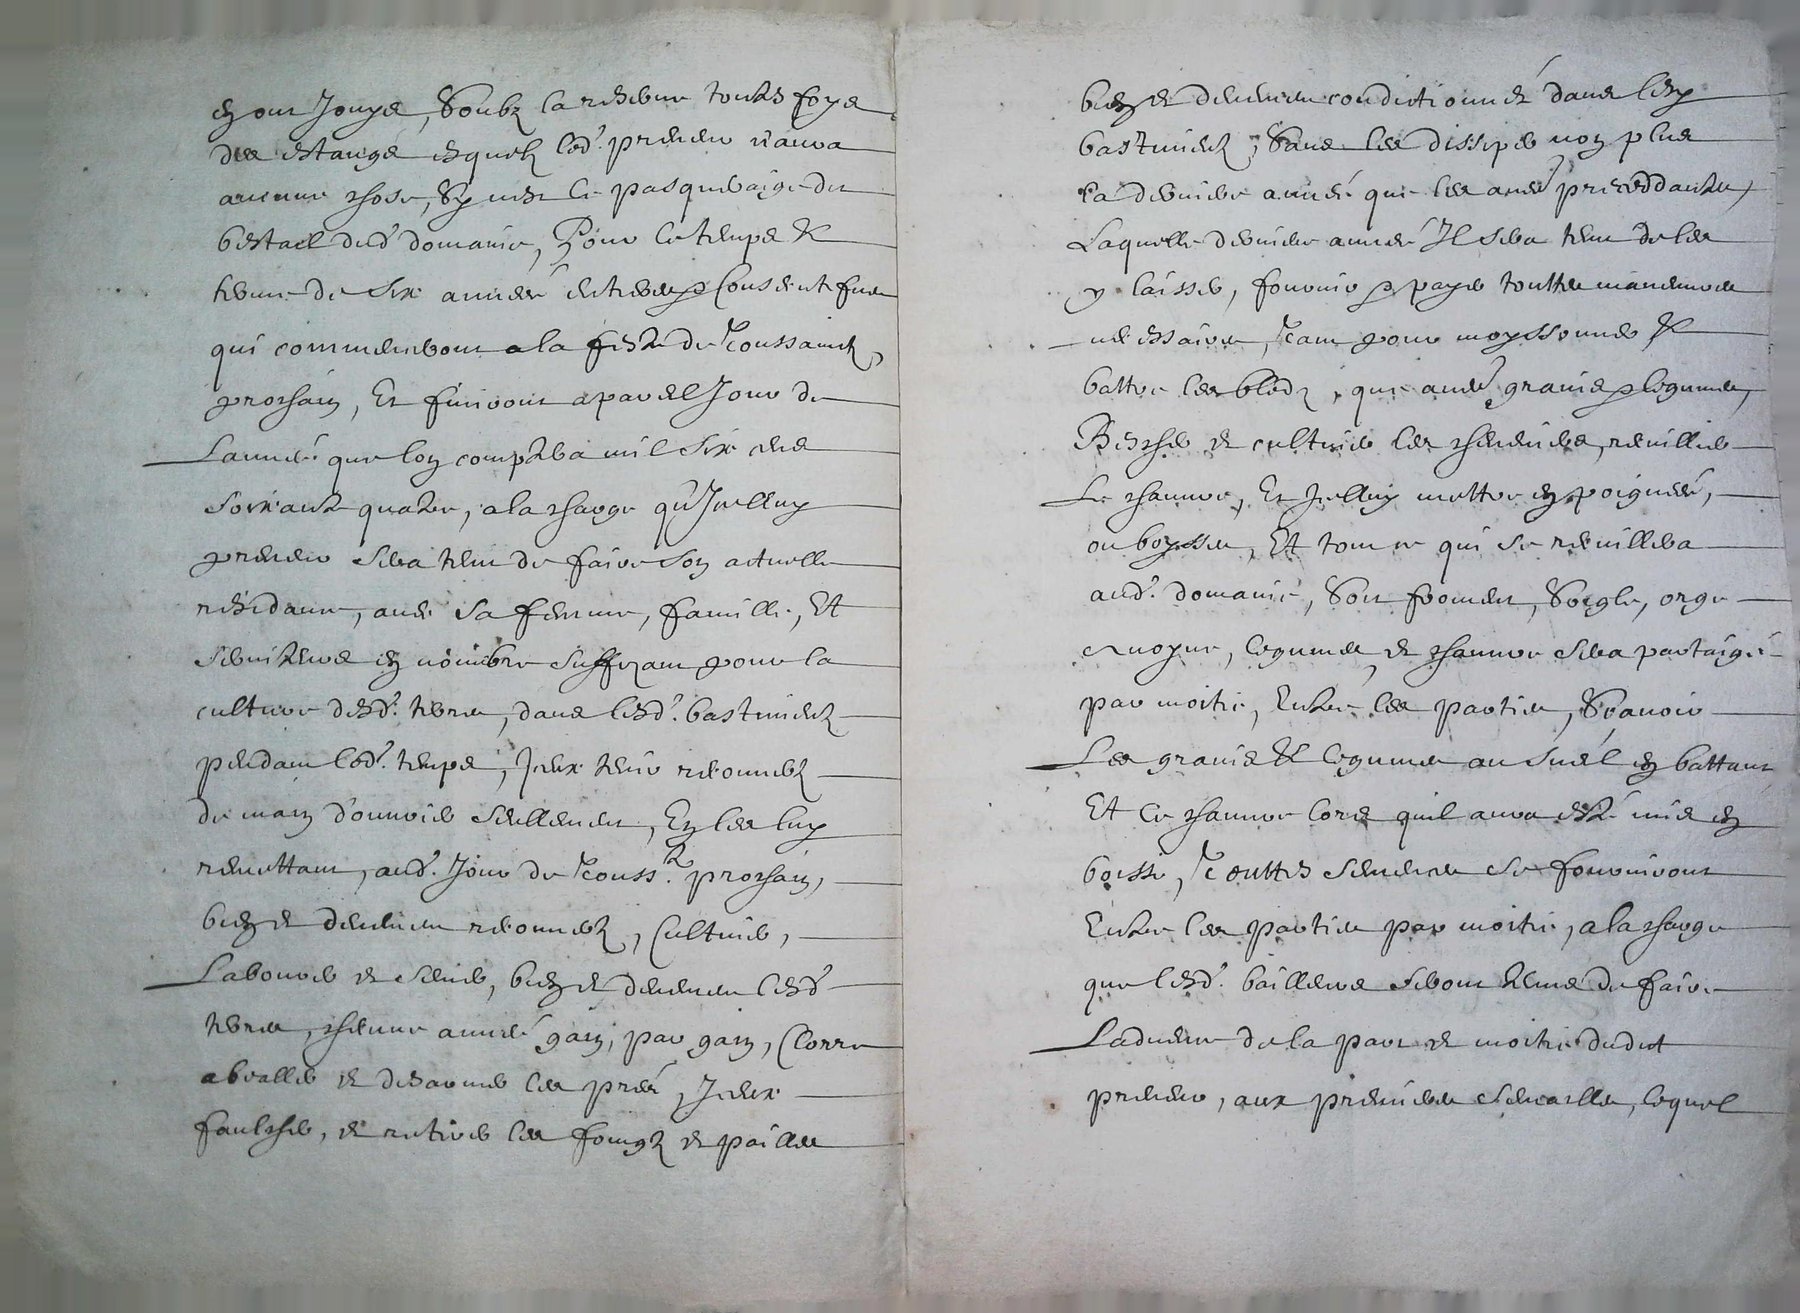 en ont Jouye, Soubz la reserve toutes foys
des estangs esquelz led.t preneur n'aura
aucune chose, Sy nest le pasqueraige du
bestail dud.t domaine, Pour le temps et
terme de Six années entieres & Consecutifves
qui commenceront a la feste de Toussainctz
prochain, Et finiront a pareil Jour de
Lannée que lon comptera mil Six cens
soixante quatre, a la charge qu'Icelluy
preneur sera tenu de faire son actuelle
residance, avec sa femme, famille, Et
serviteurs en nombre suffizant pour la
culture desd. terres, dans lesd. bastimentz
pendant led.t temps, Iceux tenir recouvertz
de main d'ouvrier seullement, En les luy
remettant, aud. Jour de Touss.tz prochain,
bien et deuement recouvertz, Cultiver,
Labourer et semer, bien et deuement lesd.
terres, chacune année gain, par gain, Clorre
abealler et detaruer les prés, Iceux
faulcher, et retirer les foingz et pailles
bien et deuement conditionnés dans lesd.
bastimentz, Sans les dissiper non plus
la derniere année que les au.es precedantes,
Laquelle derniere année Il sera tenu de les
y laisser, fournir & payer touttes manoeuvres
necessaires, Tant pour moyssonner et
battre les bledz, que au.es grains & legumes,
Bescher et cultiver les chenevieres, recuillir
Le chanvre, Et Icelluy mettre en poignées,
ou boysses, Et tout ce qui se recuillera
aud. domaine, Soit froment, Seigle, orge
avoyne, legumes, et chanvre sera partaigé
par moitié, Entre les parties, Scavoir
Les grains et legumes au Sueil en battant
Et le chanvre lors quil aura esté mis en
boisse, Touttes semences se fourniront
Entre les parties par moitié, a la charge
que lesd. bailleurs seront tenus de faire
Ladvence de la part et moitié dudict
preneur, aux premieres semailles, lequel